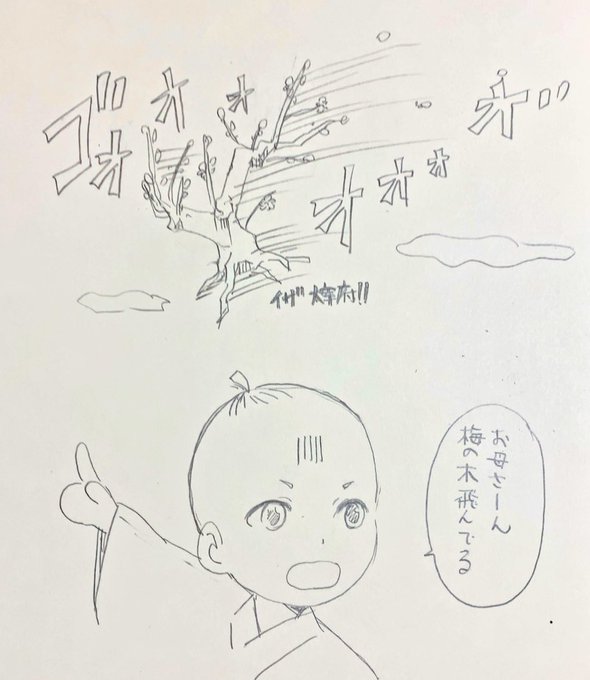 ゴォオオ
オオオオ゛
イザ大宰府!!
お母さーん
梅の木飛んでる